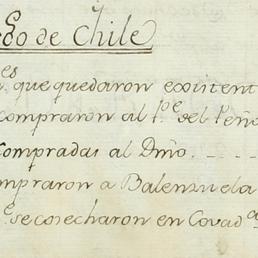 do de Chile
es
que quedaron existent
compraron al Pe. del Peño
compradas al Dmo.
mpraron a Balenzuela
e se cosecharon en Covada